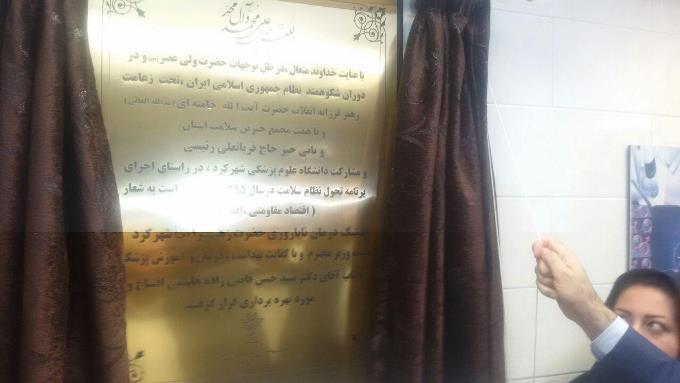 اللهم صل علی محمد و آل محمد
با عنایت خداوند متعال ،در ظل توجهات حضرت ولی عصر (عج) و در
دوران شکوهمند نظام جمهوری اسلامی ایران ،تحت زعامت
رهبر فرزانه انقلاب حضرت آیت الله خامنه ای (مدظله العالی)
و با همت مجمع خیرین سلامت استان
و بانی خیر حاج قربانعلی رئیسی
و مشارکت دانشگاه علوم پزشکی شهرکرد ، در راستای اجرای
برنامه تحول نظام سلامت در سال ۱۳۹۵ است به شعار
( اقتصاد مقاومتی ،
درمان ناباروری حضرت شهرکرد
وزیر محترم و با کفایت بهداشت ، درمان و آموزش پزشکی
آقای دکتر سید حسن قاضی زاده هاشمی افتتاح و
مورد بهره برداری قرار گرفت.